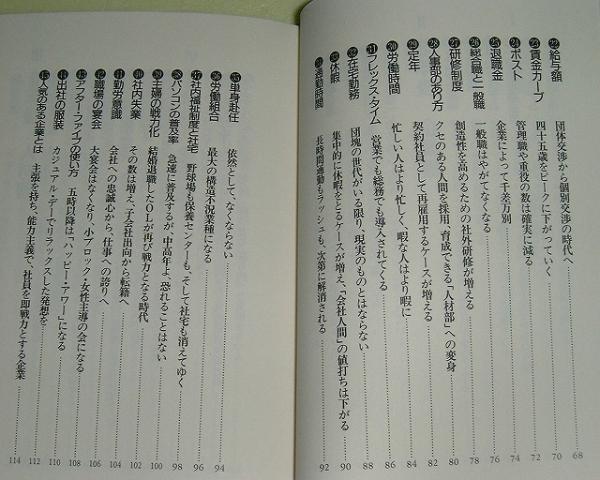 ㉒ 給与額 団体交渉から個別交渉の時代へ 68
㉓ 賃金カーブ 四十五歳をピークに下がっていく 70
㉔ ポスト 管理職や重役の数は確実に減る 72
㉕ 退職金 企業によって千差万別 74
㉖ 総合職と一般職 一般職はやがてなくなる 76
㉗ 研修制度 創造性を高めるための社外研修が増える 78
㉘ 人事部のあり方 クセのある人間を採用・育成できる「人材部」への変身 80
㉙ 定年 契約社員として再雇用するケースが増える 82
㉚ 労働時間 忙しい人はより忙しく、暇な人はより暇に 84
㉛ フレックス・タイム 営業でも総務でも導入されてくる 86
㉜ 在宅勤務 団塊の世代がいる限り、現実のものとはならない 88
㉝ 休暇 集中的に休暇をとるケースが増え、「会社人間」の値打ちは下がる 90
㉞ 通勤時間 長時間通勤もラッシュも、次第に解消される 92
㉟ 単身赴任 依然として、なくならない 94
㊱ 労働組合 最大の構造不況業種になる 96
㊲ 社内福祉制度と社宅 野球場も保養センターも、そして社宅も消えてゆく 98
㊳ パソコンの普及率 急速に普及するが、中高年よ、恐れることはない 98
㊴ 主婦の戦力化 結婚退職したOLが再び戦力となる時代 100
㊵ 社内失業 その数は増え、子会社出向から転籍へ 102
㊶ 勤労意識 会社への忠誠心から、仕事への誇りへ 104
㊷ 職場の宴会 大宴会はなくなり、小ブロック・女性主導の会になる 106
㊸ アフター・ファイブの使い方 五時以降は「ハッピー・アワー」になる 108
㊹ 出社の服装 カジュアル・デーでリラックスした発想を 110
㊺ 人気のある企業とは 主張を持ち、能力主義で、社員を即戦力とする企業 112
114